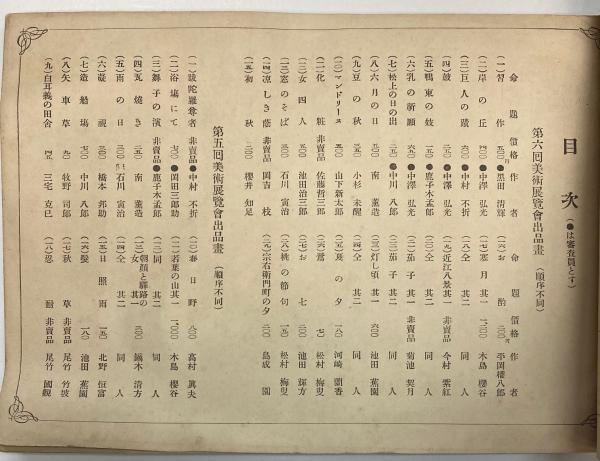 目次（●は審査員とす）
第六回美術展覽會出品畫（順序不同）
命題 價格 作者
（一）習作 五〇〇円 ●黒田清輝
（二）岸の丘 四〇〇 ●中澤弘光
（三）巨人の蹟 ●中村不折
（四）鼓 二五〇 ●中澤弘光
（五）鴨東の妓 ●鹿子木孟郎
（六）乳の新願 ●中澤弘光
（七）松上の日の出 三五〇 ●中川八郎
（八）六月の日 南薫造
（九）豆の秋 三五〇 小杉未醒
（一〇）マンドリーヌ 五〇〇 山下新太郎
（一一）化粧 非賣品 佐藤哲三郎
（一二）女四人 五〇〇 池田治三郎
（一三）窓のそば 三五〇 石川寅治
（一四）凉しき蔭 非賣品 岡吉枝
（一五）和秋 三〇〇 櫻井知足
命題 價格 作者
（一六）お酌 三〇〇円 平岡權八郎
（一七）寒月其一 一、二〇〇 木島櫻谷
（一八）仝其二 同人
（一九）近江八景其一 非賣品 今村紫紅
（二〇）仝其二 同人
（二一）茄子其一 非賣品 菊池契月
（二二）茄子其二 同人
（二三）灯し頃其一 六〇〇 池田蕉園
（二四）仝其二 同人
（二五）夏の夕 一八〇 河崎蘭香
（二六）鶯 七〇 松村梅叟
（二七）お七 二〇〇 池田輝方
（二八）桃の節句 一五〇 松村梅叟
（二九）宗右衛門町の夕 二〇〇 島成園
第五回美術展覽會出品畫（順序不同）
（一）跋陀羅尊者 非賣品 ●中村不折
（二）浴塲にて 七〇〇 ●岡田三郎助
（三）舞子の濱 非賣品 ●鹿子木孟郎
（四）瓦燒き 三五〇 南薫造
（五）雨の日 三〇〇 石川寅治
（六）凝視 三〇〇 橋本邦助
（七）造船塲 七〇〇 中川八郎
（八）矢車草 九〇 牧野司郎
（九）白耳義の田舎 四五 三宅克巳
（一〇）春日野 八〇〇 高村眞夫
（一一）若葉の山其一 一、〇〇〇 木島櫻谷
（一二）同其二 同人
（一三）朝顔と驛路の女其一 三〇〇 鏑木清方
（一四）仝其二 同人
（一五）日照雨 一五〇 北野恒富
（一六）髮 一八〇 池田蕉園
（一七）秋草 非賣品 尾竹竹坡
（一八） 非賣品 尾竹國觀